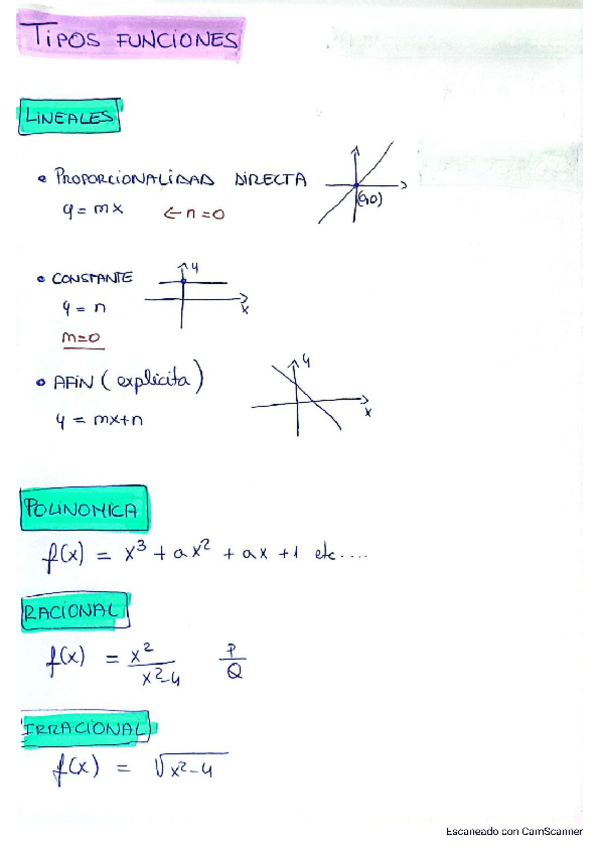 TIPOS FUNCIONES
LINEALES
• PROPORCIONALIDAD DIRECTA
y = mx ← n=0
(0,0)
• CONSTANTE
y
x
y = n
m=0
• AFIN (explícita)
y
x
y = mx+n
POLINOMICA
f(x) = x³ + ax² + ax + 1 etc....
RACIONAL
f(x) = x²/x²-4 P/Q
IRRACIONAL
f(x) = √x²-4
Escaneado con CamScanner